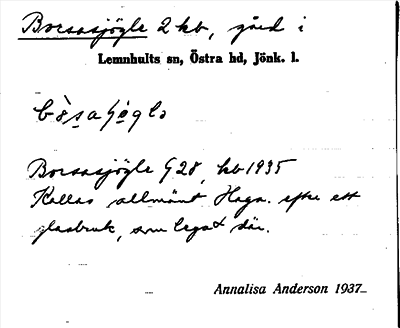 Borsasjögle 2 kb, gård i
Lemnhults sn, Östra hd, Jönk. l.
Borsasjögle G 28, kb 1935
Kallas allmänt Haga. efter ett
glasbruk, som legat där.
Annalisa Anderson 1937